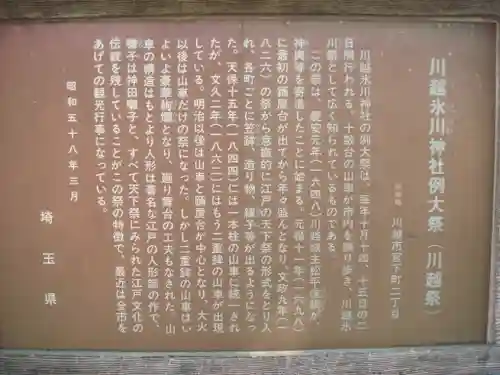 川越氷川神社例大祭（川越祭）
川越市宮下町二丁目
川越氷川神社の例大祭は、毎年十月十四、十五日の二
日間行われる。十数台の山車が市内を練り歩き、川越氷
川祭として広く知られているものである。
この祭は、慶安元年（一六四八）川越城主松平信綱が、
神輿等を寄進したことに始まる。元禄十一年（一六九八）
に最初の踊屋台が出てから年々盛んとなり、文政九年（一
八二六）の祭から意識的に江戸の天下祭の形式をとり入
れ、各町ごとに笠鉾、造り物、囃子等が出るようになっ
た。天保十五年（一八四四）には一本柱の山車に統一され
たが、文久二年（一八六二）にはもう二重鉾の山車が出現
している。明治以後は山車と踊屋台が中心となり、大火
以後は山車だけの祭になった。しかし二重鉾の山車はい
よいよ豪華絢爛となり、廻り舞台の工夫もなされた。山
車の構造はもとより人形は著名な江戸の人形師の作で、
囃子は神田囃子と、すべて天下祭にみられた江戸文化の
伝統を残していることがこの祭の特徴で、最近は全市を
あげての観光行事になっている。
昭和五十八年三月
埼玉県